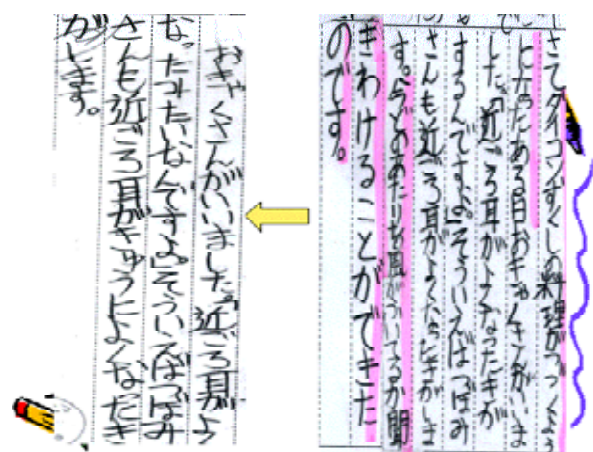 さてダイコンずくしの料理がつづくよう
になったある日おきゃくさんがいま
した。「近ごろ耳がよくなったきが
するんですよ。」そういえばつぼみ
さんも近ごろ耳がよくなったきがしま
す。今どのあたりを風がついてるか聞
きわけることができた
のです。
おきゃくさんがいいました。「近ごろ耳がよく
なったみたいなんですよ。」そういえばつぼみ
さんも近ごろ耳がきゅうによくなったき
がします。